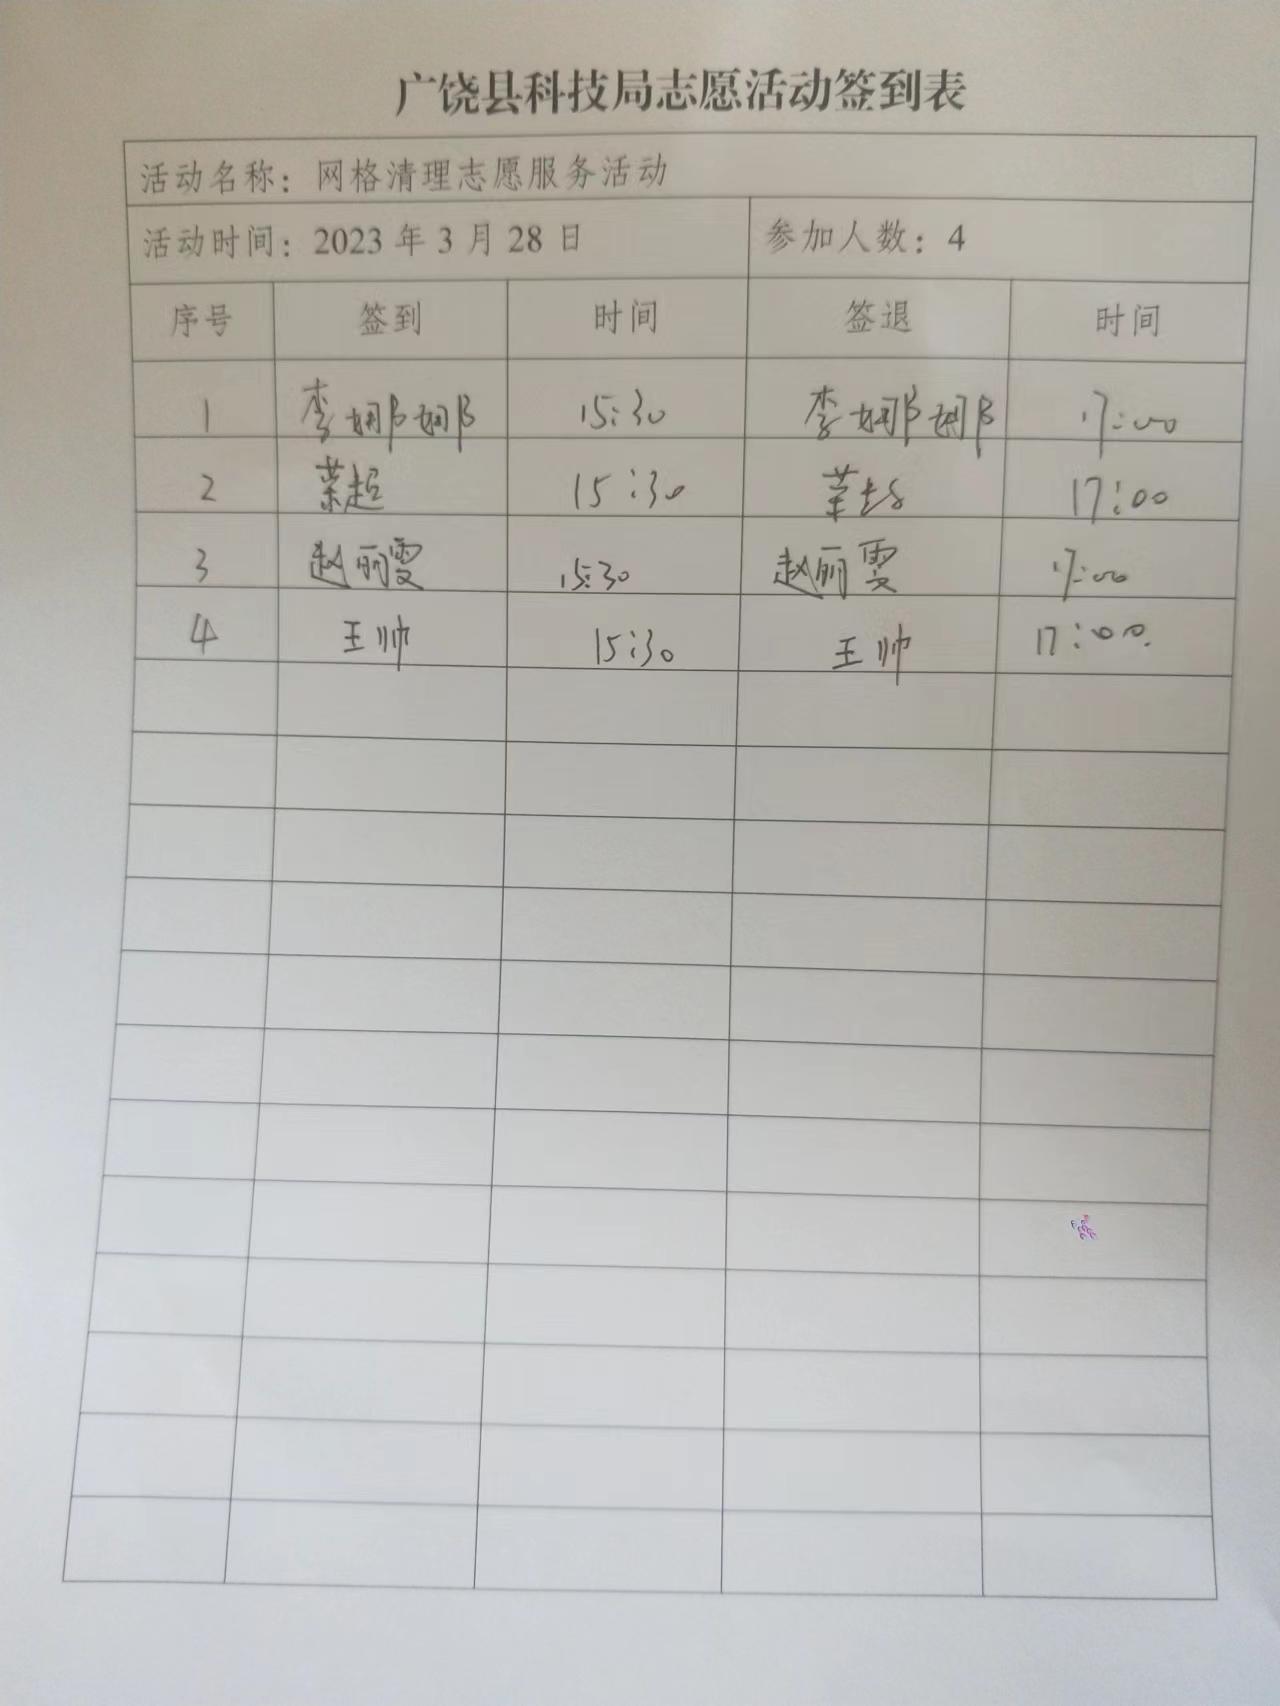 广饶县科技局志愿活动签到表
活动名称：网格清理志愿服务活动
活动时间：2023 年 3 月 28 日 参加人数：4
序号 签到 时间 签退 时间
1 李娜娜 15:30 李娜娜 17:00
2 荣超 15:30 荣超 17:00
3 赵丽雯 15:30 赵丽雯 17:00
4 王帅 15:30 王帅 17:00